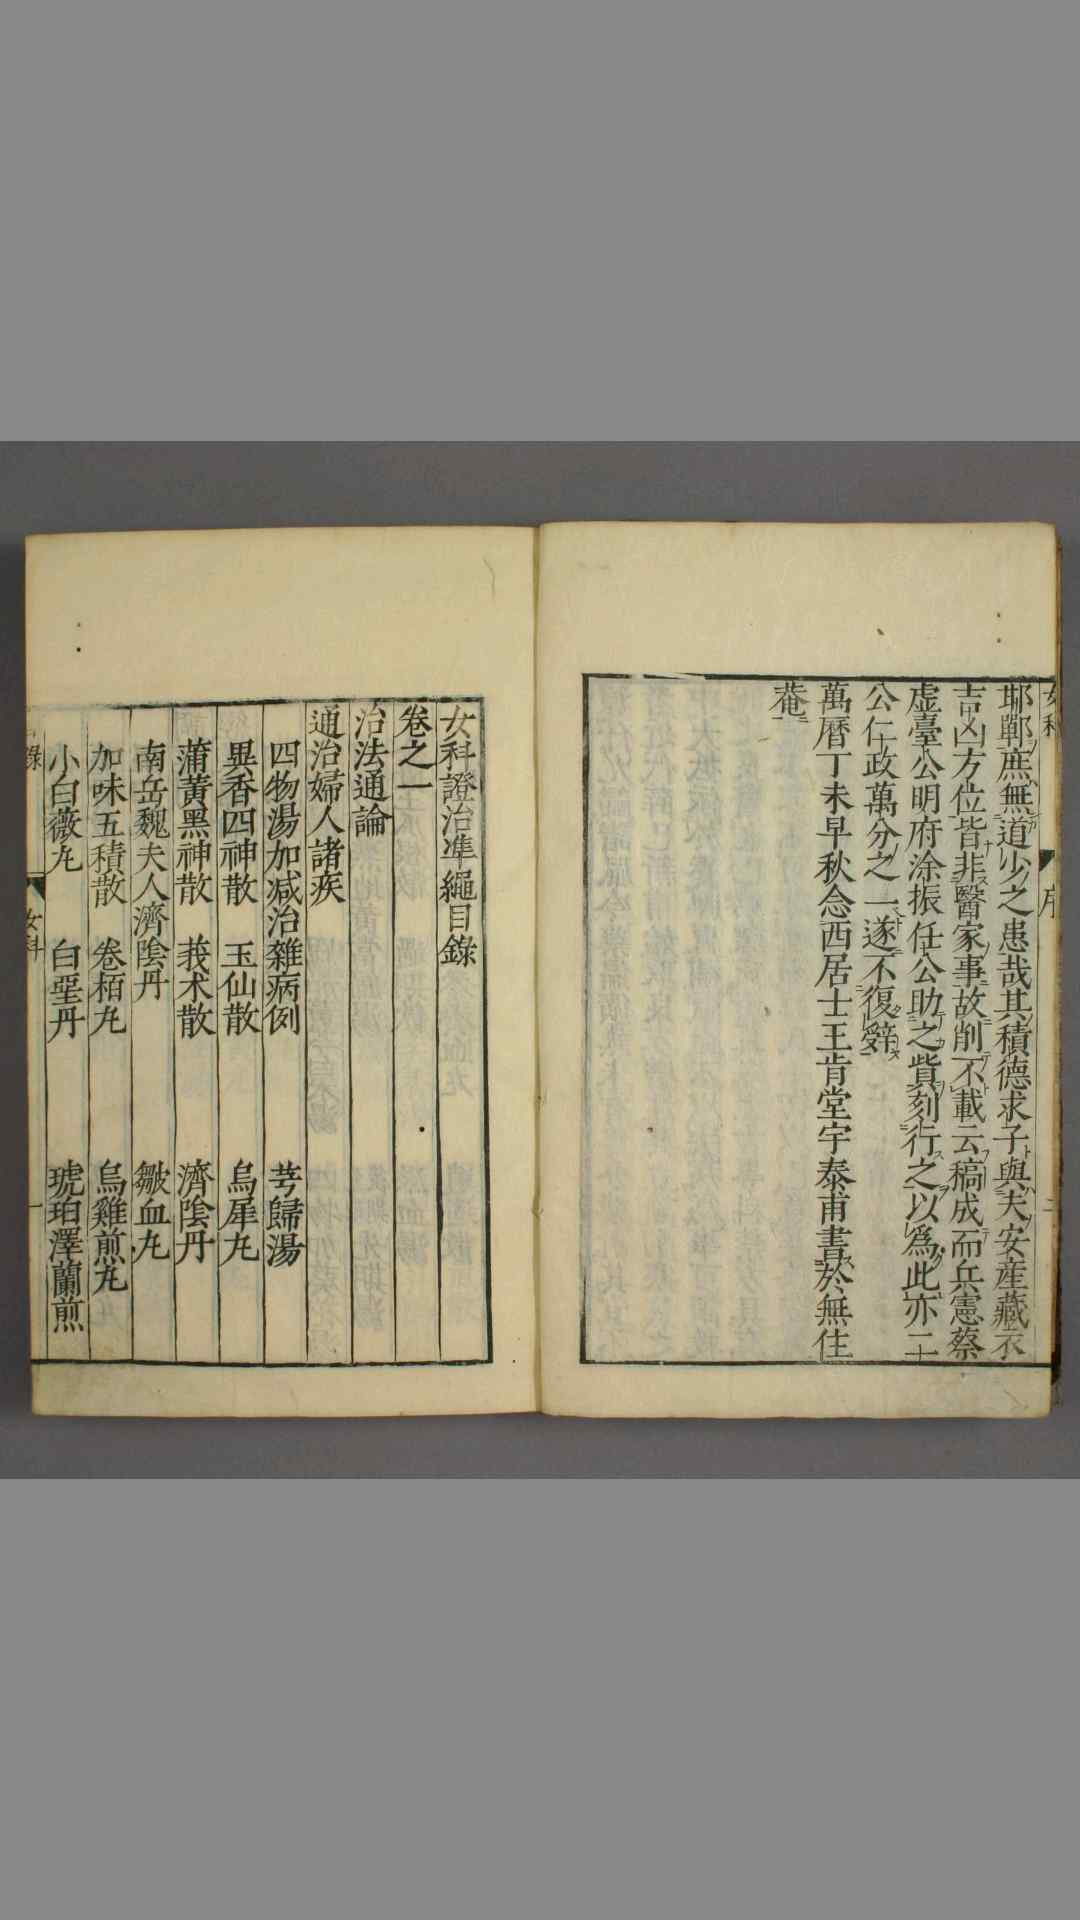 耶鄲蔗無道少之患哉其積德求子與夫安産藏衣
吉凶方位皆非醫家事故削不載云稿成而兵憲蔡
虚臺公明府涂振任公助之貲刻行之以爲此亦二
公仁政萬分之一遂不復辤
萬曆丁未早秋念西居士王肯堂宇泰甫書於無住
菴
女科
序
二
女科證治凖繩目錄
卷之一
治法通論
通治婦人諸疾
四物湯加減治雜病例 芎歸湯
異香四神散 玉仙散 烏犀丸
蒲黃黑神散 莪朮散 濟陰丹
南岳魏夫人濟陰丹 皺血丸
加味五積散 卷栢丸 烏雞煎丸
小白薇丸 白堊丹 琥珀澤蘭煎
女科
一